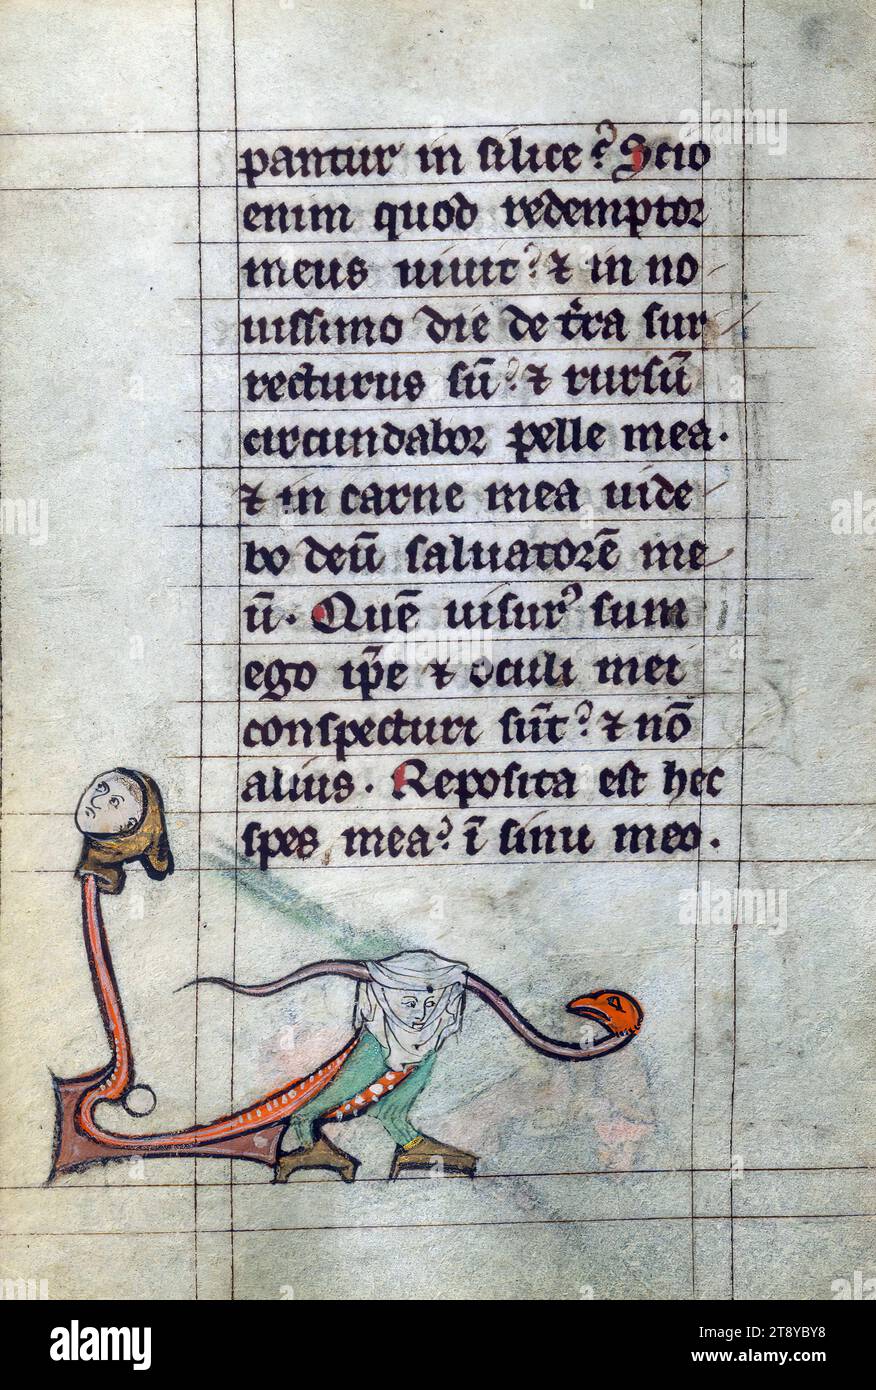 pantur in silice? Scio
enim quod redemptor
meus uiuit? ⁊ in no
uissimo die de t̕ra sur
recturus sū? ⁊ rursū
circundabor pelle mea.
⁊ in carne mea uide
bo deū saluatorē me
ū. Quē uisurꝰ sum
ego ip̄e ⁊ oculi mei
conspecturi sūt? ⁊ nō
alius. Reposita est hec
spes mea? ī sinu meo.
alamy
alamy
Image ID: 2T8YBY8
www.alamy.com